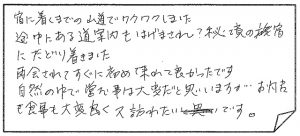 宿に着くまでの山道でワクワクしました
途中にある道案内もはげまされ？秘境の旅宿
にたどり着きました
再会されてすぐに初めて来れて良かったです
自然の中で営む事は大変だと思いますが…お料理
も食事も大変良く又訪れたいです。